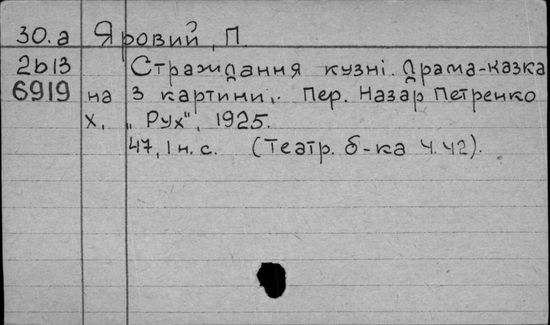 30.а Яровий, П.
2b13 Страждання кузні. Драма-казка
6919 на 3 картини. Пер. Назар Петренко
х. „Рух", 1925.
47, 1 н. с. (Театр. б-ка Ч. 42).